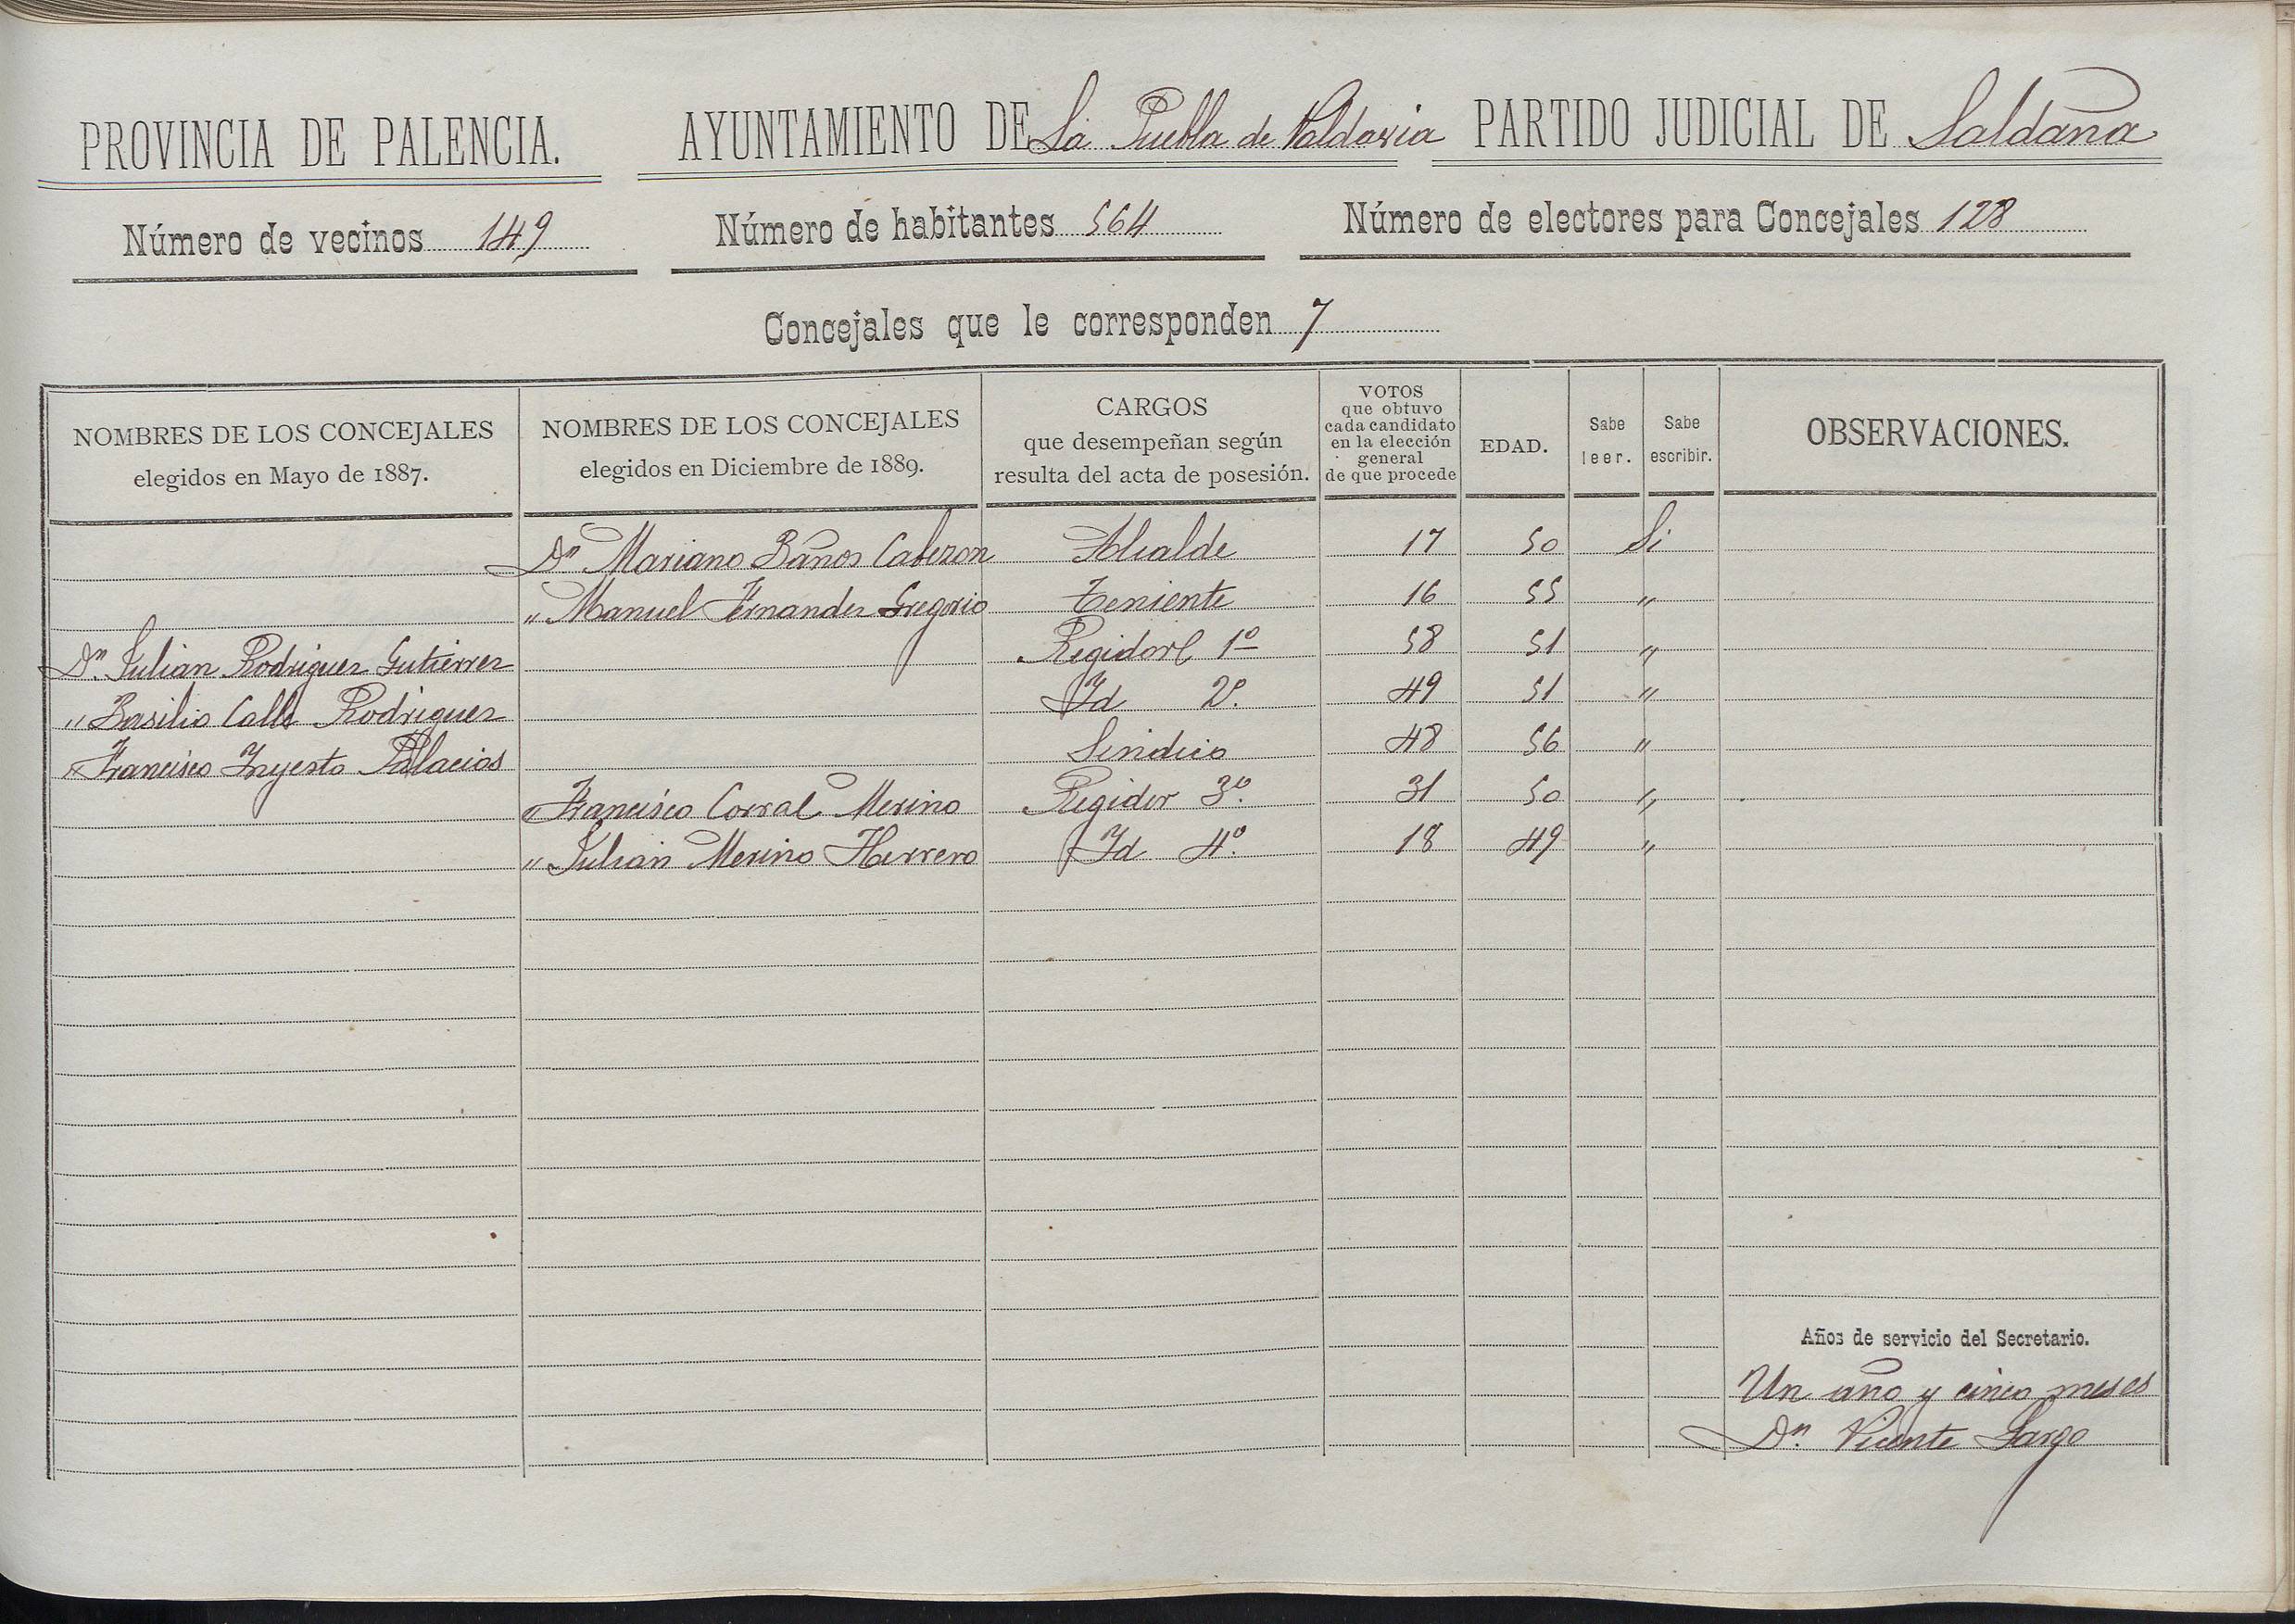 PROVINCIA DE PALENCIA. AYUNTAMIENTO DE La Puebla de Valdavia PARTIDO JUDICIAL DE Saldaña
Número de vecinos 149 Número de habitantes 564 Número de electores para Concejales 128
Concejales que le corresponden 7
NOMBRES DE LOS CONCEJALES
elegidos en Mayo de 1887.
NOMBRES DE LOS CONCEJALES
elegidos en Diciembre de 1889.
CARGOS
que desempeñan según
resulta del acta de posesión.
VOTOS
que obtuvo
cada candidato
en la elección
general
de que procede
EDAD.
Sabe
leer.
Sabe
escribir.
OBSERVACIONES.
Dn Mariano Baños Cabezon Alcalde 17 50 Si
" Manuel Fernandez Gregorio Teniente 16 55 "
Dn. Julian Rodriguez Gutierrez Regidor 1º 58 51 "
" Basilio Calle Rodriguez Id 2º. 49 51 "
" Francisco Inyesto Palacios Sindico 48 56 "
" Francisco Corral Merino Regidor 3º. 31 50 "
" Julian Merino Herrero Id 4º. 18 49 "
Años de servicio del Secretario.
Un año y cinco meses
Dn. Vicente Largo